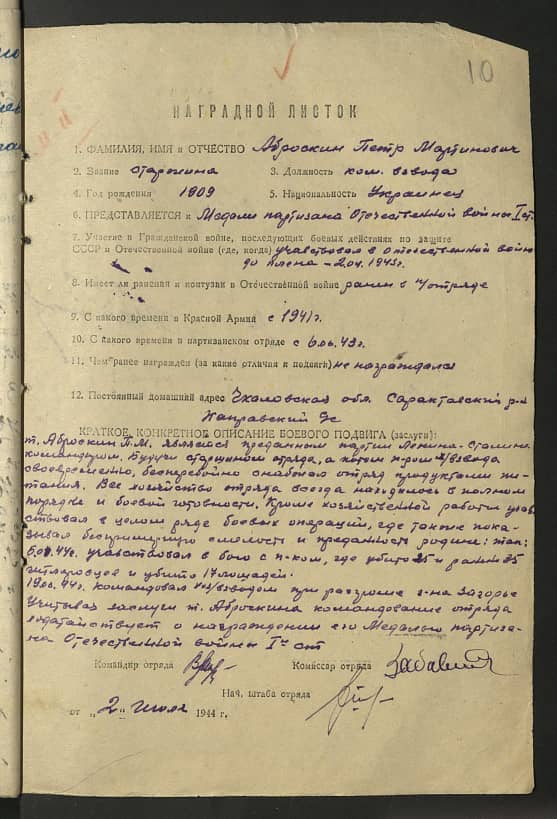 10
НАГРАДНОЙ ЛИСТОК
1. ФАМИЛИЯ, ИМЯ и ОТЧЕСТВО Аброскин Петр Мартинович
2. Звание старшина 3. Должность ком. взвода
4. Год рождения 1909 5. Национальность Украинец
6. ПРЕДСТАВЛЯЕТСЯ к Медали партизана Отечественной войны I ст.
7. Участие в Гражданской войне, последующих боевых действиях по защите
СССР и Отечественной войне (где, когда) участвовал в Отечественной войне
до плена – 1943г.
8. Имеет ли ранения и контузии в Отечественной войне ранен в отряде
9. С какого времени в Красной Армии с 1941г.
10. С какого времени в партизанском отряде с 6.04.43г.
11. Чем ранее награжден (за какие отличия и подвиги) не награждался
12. Постоянный домашний адрес Чкаловская обл. Саракташский р-н
с/с
КРАТКОЕ, КОНКРЕТНОЕ ОПИСАНИЕ БОЕВОГО ПОДВИГА (заслуги):
т. Аброскин П.М. является преданным партии Ленина-Сталина
командиром. Будучи старшиной отряда, а потом к-взвода
своевременно, бесперебойно снабжал отряд продуктами пи-
тания. Все хозяйство отряда всегда находилось в полном
порядке и боевой готовности. Кроме хозяйственной работы участ
ствовал в целом ряде боевых операций, где также пока-
зывал беспримерную смелость и преданность родине: так:
44г. участвовал в бою с п-ком, где убито 25 и ранено 35
гитлеровцев и убито 17 лошадей.
44г. командовал взводом при разгроме г-на Загорье
Учитывая заслуги т. Аброскина командование отряда
ходатайствует о награждении его Медалью партиза-
на Отечественной войны I ст
Командир отряда Комиссар отряда
Нач. штаба отряда
от „2" июля 1944 г.